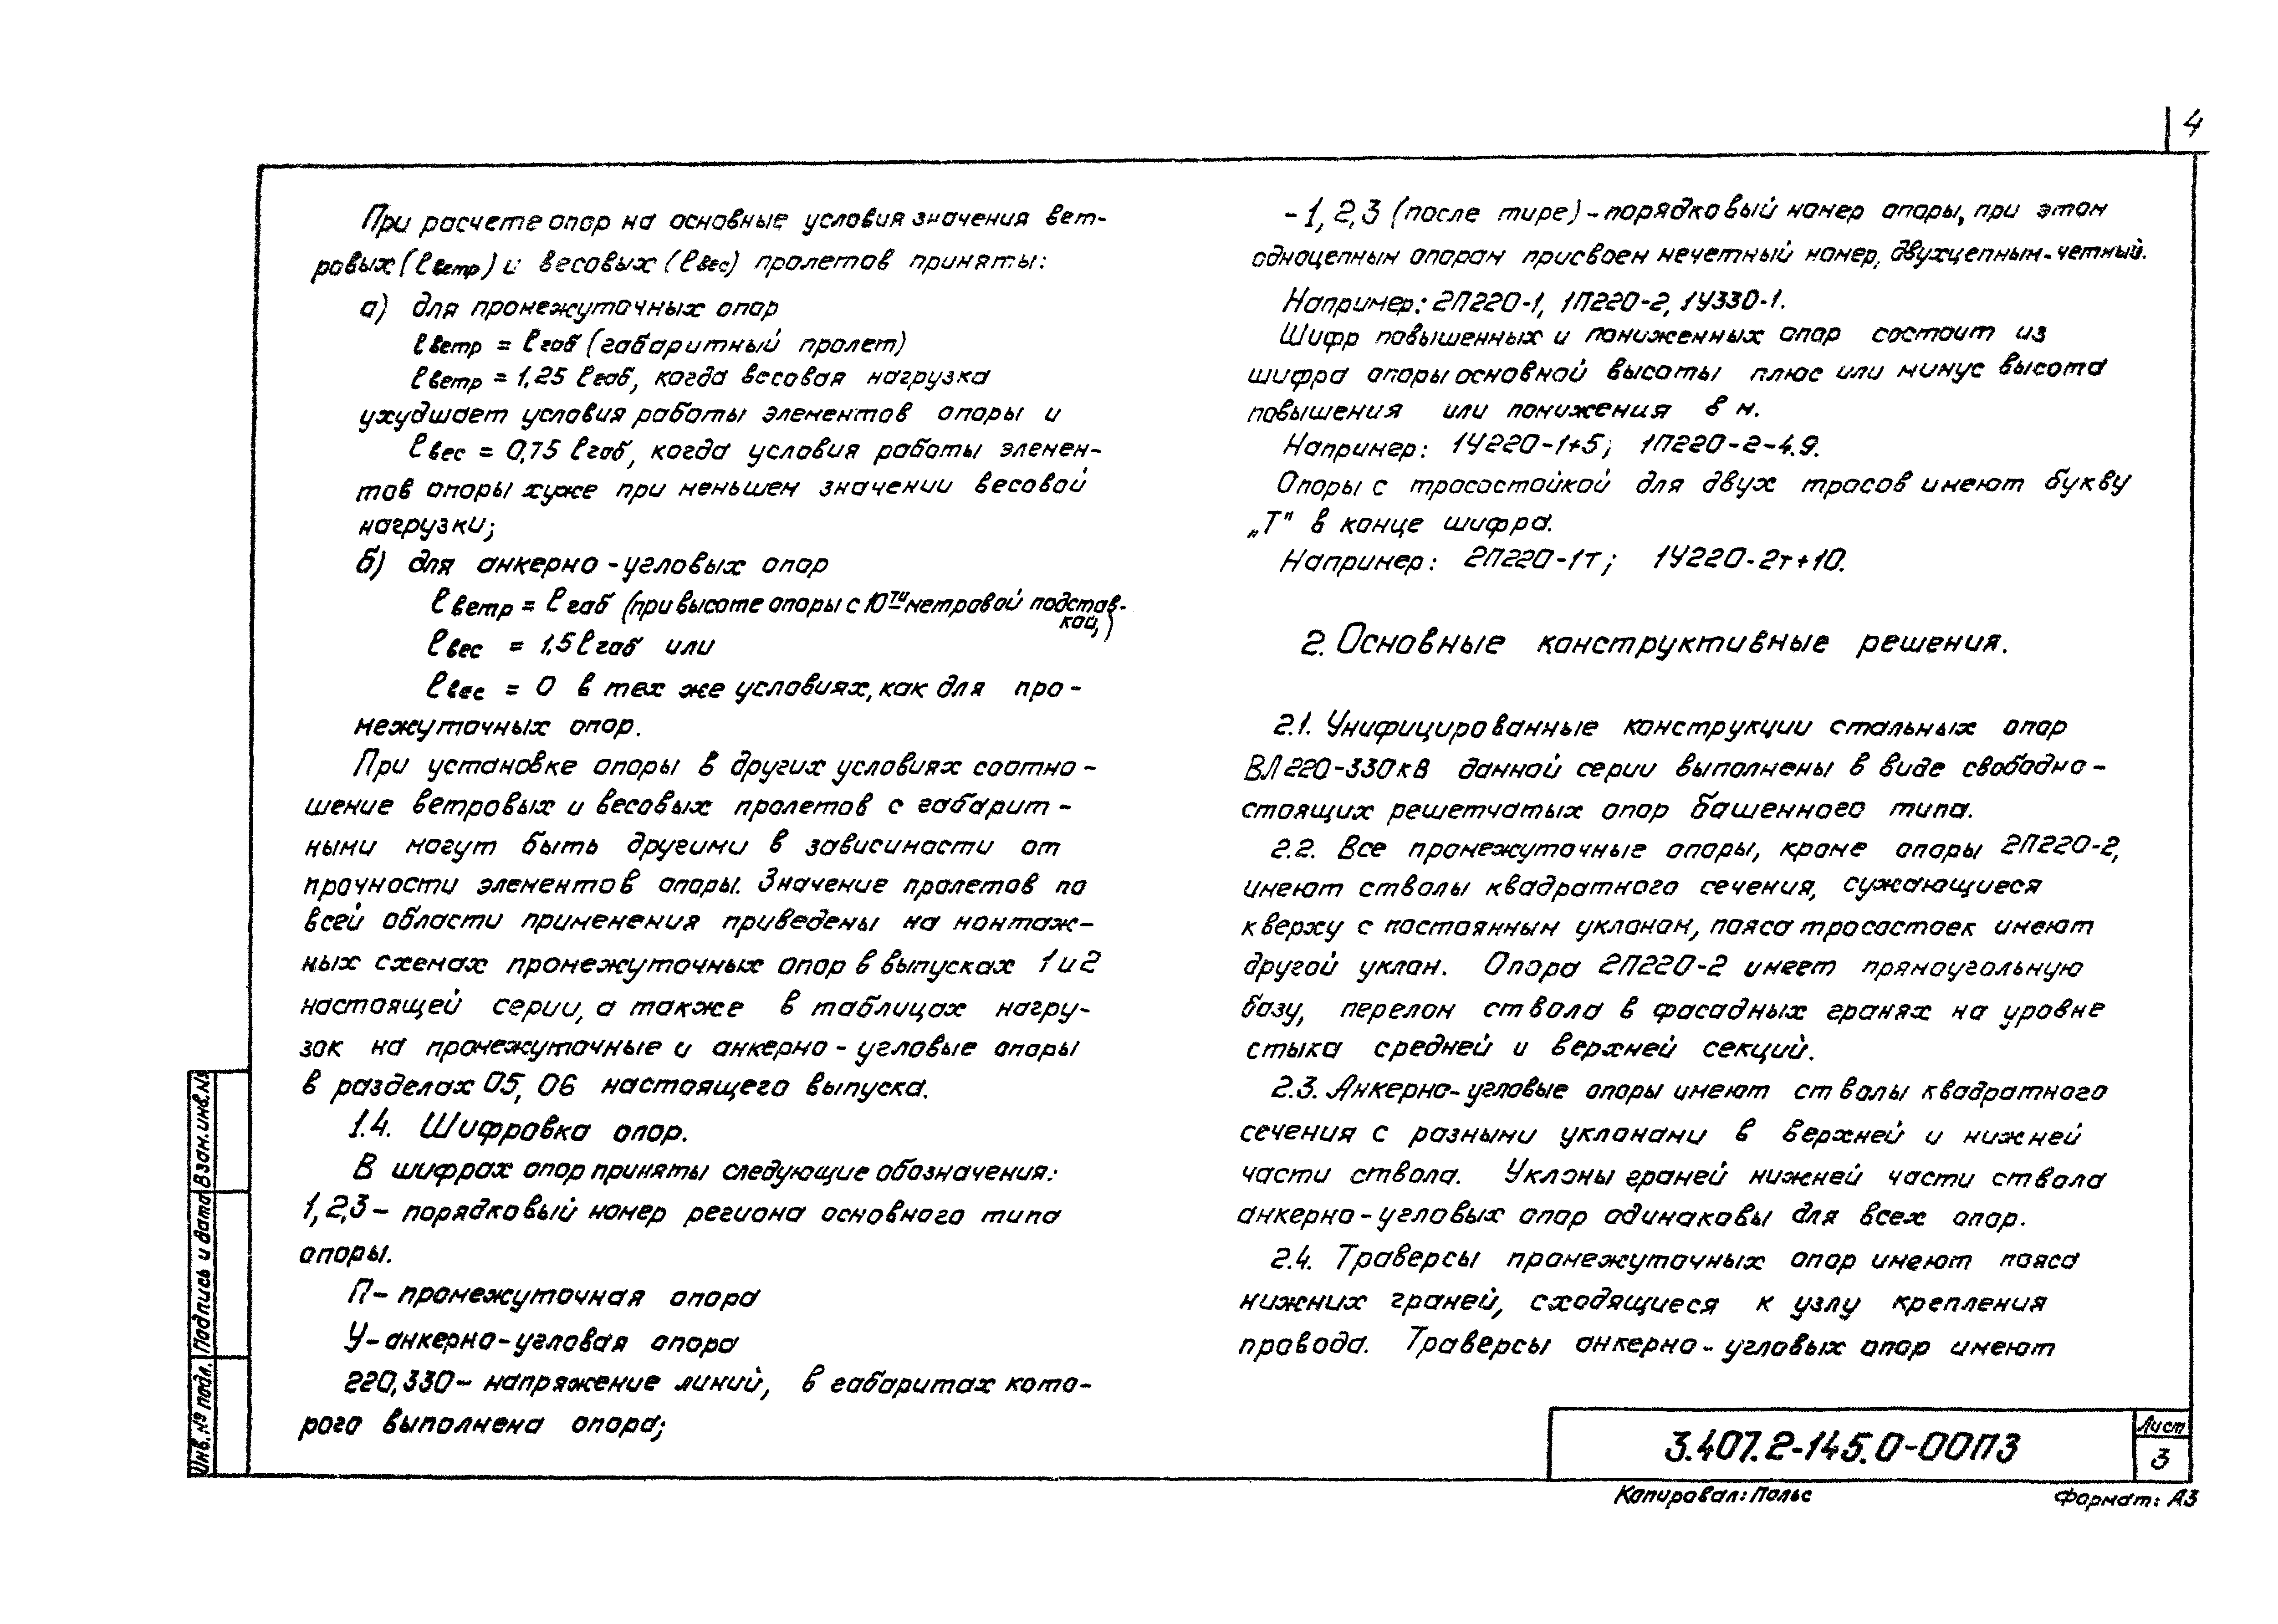 4
При расчете опор на основные условия значения вет-
ровых (ℓветр) и весовых (ℓвес) пролетов приняты:
а) для промежуточных опор
ℓветр = ℓгаб (габаритный пролет)
ℓветр = 1,25 ℓгаб, когда весовая нагрузка
ухудшает условия работы элементов опоры и
ℓвес = 0,75 ℓгаб, когда условия работы элемен-
тов опоры хуже при меньшем значении весовой
нагрузки;
б) для анкерно-угловых опор
ℓветр = ℓгаб (при высоте опоры с 10ти метровой подстав-
кой,)
ℓвес = 1,5 ℓгаб или
ℓвес = 0 в тех же условиях, как для про-
межуточных опор.
При установке опоры в других условиях соотно-
шение ветровых и весовых пролетов с габарит-
ными могут быть другими в зависимости от
прочности элементов опоры. Значение пролетов по
всей области применения приведены на монтаж-
ных схемах промежуточных опор в выпусках 1 и 2
настоящей серии, а также в таблицах нагру-
зок на промежуточные и анкерно-угловые опоры
в разделах 05, 06 настоящего выпуска.
1.4. Шифровка опор.
В шифрах опор приняты следующие обозначения:
1,2,3 – порядковый номер региона основного типа
опоры.
П – промежуточная опора
У – анкерно-угловая опора
220, 330 – напряжение линий, в габаритах кото-
рого выполнена опора;
- 1, 2, 3 (после тире) - порядковый номер опоры, при этом
одноцепным опорам присвоен нечетный номер, двухцепным - четный.
Например: 2П220-1, 1П220-2, 1У330-1.
Шифр повышенных и пониженных опор состоит из
шифра опоры основной высоты плюс или минус высота
повышения или понижения в м.
Например: 1У220-1+5; 1П220-2-4.9.
Опоры с тросостойкой для двух тросов имеют букву
„Т" в конце шифра.
Например: 2П220-1т; 1У220-2т+10.
2. Основные конструктивные решения.
2.1. Унифицированные конструкции стальных опор
ВЛ 220-330кВ данной серии выполнены в виде свободно-
стоящих решетчатых опор башенного типа.
2.2. Все промежуточные опоры, кроме опоры 2П220-2,
имеют стволы квадратного сечения, сужающиеся
кверху с постоянным уклоном, пояса тросостоек имеют
другой уклон. Опора 2П220-2 имеет прямоугольную
базу, перелом ствола в фасадных гранях на уровне
стыка средней и верхней секций.
2.3. Анкерно-угловые опоры имеют стволы квадратного
сечения с разными уклонами в верхней и нижней
части ствола. Уклоны граней нижней части ствола
анкерно-угловых опор одинаковы для всех опор.
2.4. Траверсы промежуточных опор имеют пояса
нижних граней, сходящиеся к узлу крепления
провода. Траверсы анкерно-угловых опор имеют
Взам. инв. №
Подпись и дата
Инв. № подл.
3.407.2-145.0-00ПЗ
Лист
3
Копировал: Польс
Формат: А3